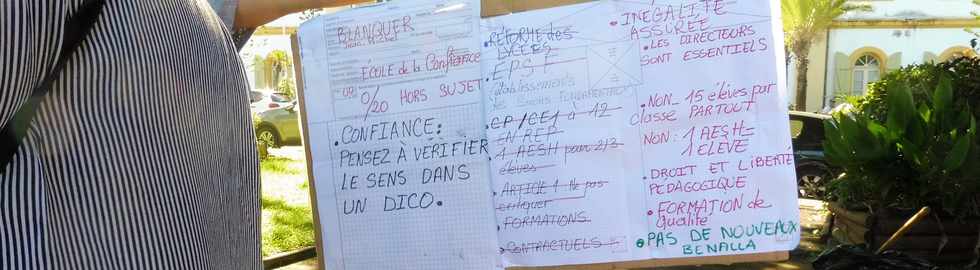 BLANQUER
Jean-Michel
ÉCOLE de la Confiance
0/20 HORS SUJET
• CONFIANCE:
PENSEZ À VÉRIFIER
LE SENS DANS
UN DICO.
• REFORME des
LYCEES
• EPSF
Etablissements
des Savoirs FONDAMENTAUX
• CP/CE1 à 12
EN REP
• 1 AESH pour 2/3
élèves
• ARTICLE 1 Ne pas
critiquer
• FORMATIONS
• CONTRACTUELS
• INEGALITÉ
ASSURÉE
• LES DIRECTEURS
SONT ESSENTIELS
• NON_ 15 élèves par
classe PARTOUT
NON: 1 AESH=
1 ELEVE
• DROIT ET LIBERTÉ
PEDAGOGIQUE
• FORMATION de
Qualité
• PAS DE NOUVEAUX
BENALLA